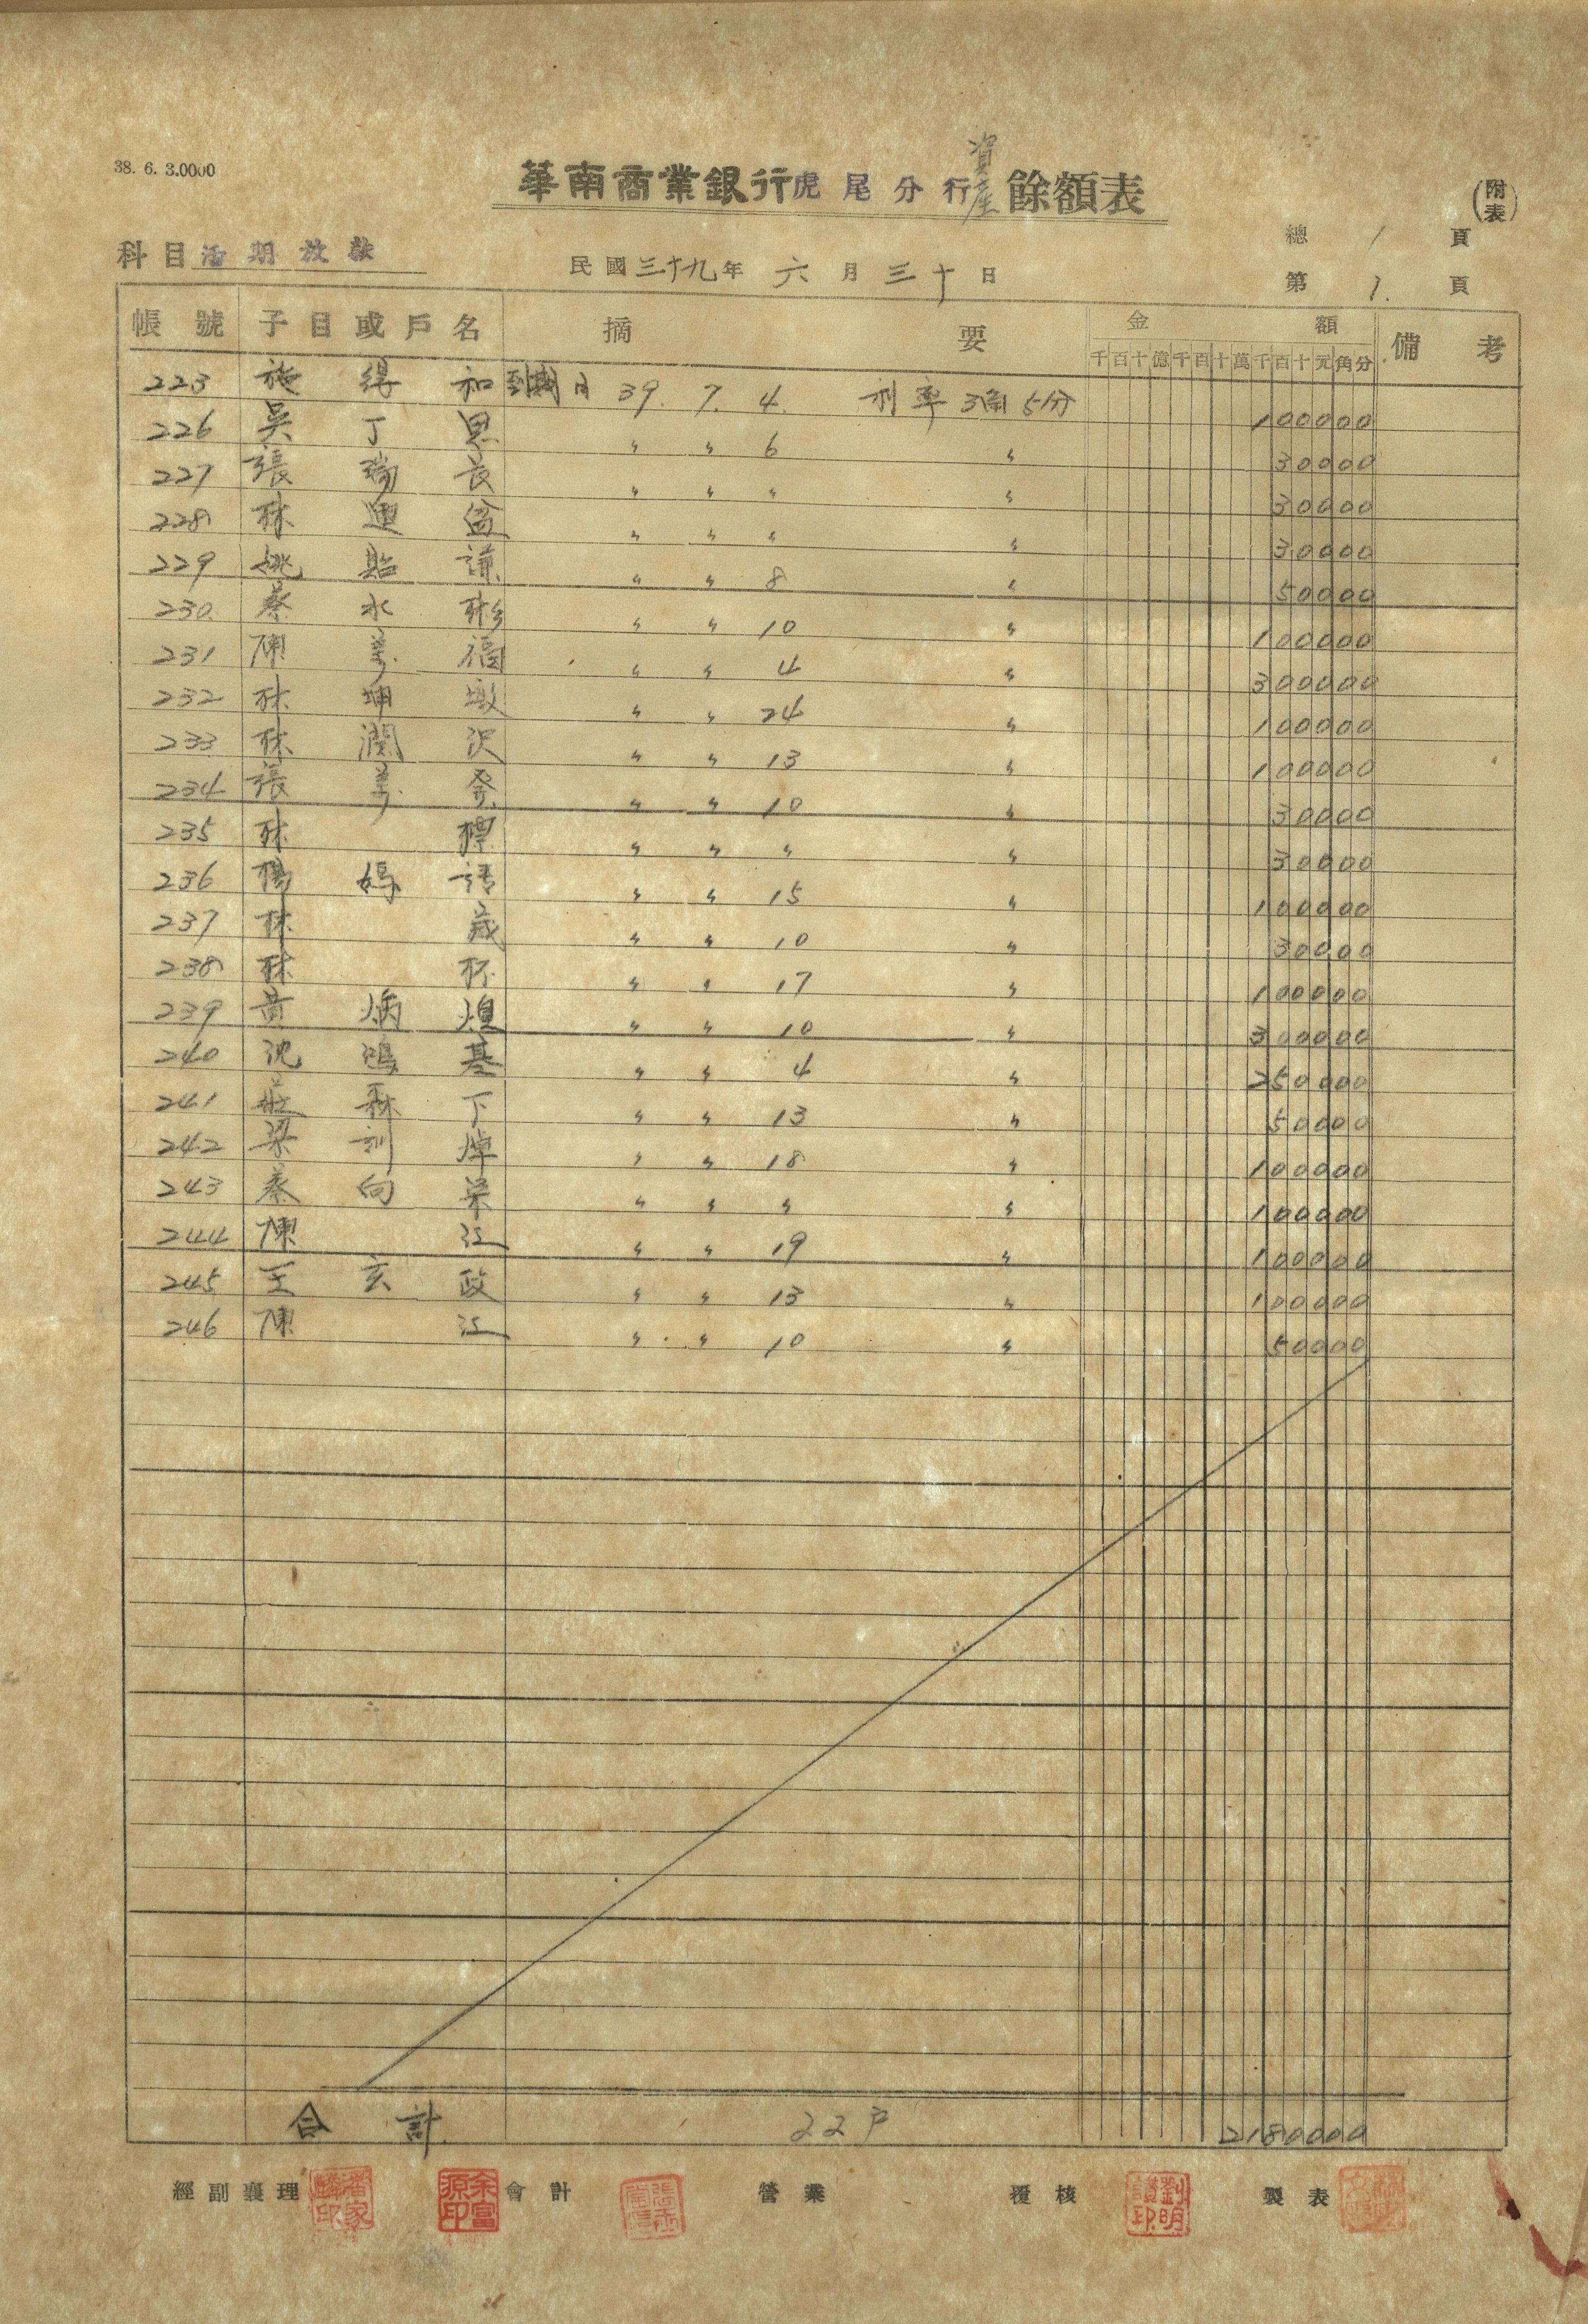 38. 6. 3.0000
華南商業銀行虎尾分行資產餘額表
(附表)
總 1 頁
科目 活期放款
民國三十九年 六月三十日
第 1. 頁
帳號 子目或戶名 摘要 金額 備考
千百十億千百十萬千百十元角分
223 施得和 到期日 39. 7. 4. 利率3角5分 100000
226 吳丁思 〃 〃 6 〃 30000
227 張瑞長 〃 〃 〃 〃 30000
228 林 盆 〃 〃 〃 〃 30000
229 姚貽謙 〃 〃 8 〃 50000
230 蔡水彬 〃 〃 10 〃 100000
231 陳萬福 〃 〃 4 〃 300000
232 林坤墩 〃 〃 24 〃 100000
233 林潤沢 〃 〃 13 〃 100000
234 張萬發 〃 〃 10 〃 30000
235 林標 〃 〃 〃 〃 30000
236 楊媽請 〃 〃 15 〃 100000
237 林歲 〃 〃 10 〃 30000
238 林杯 〃 〃 17 〃 100000
239 黃炳煌 〃 〃 10 〃 300000
240 沈鴻基 〃 〃 4 〃 250000
241 莊森下 〃 〃 13 〃 50000
242 梁訓焯 〃 〃 18 〃 100000
243 蔡向榮 〃 〃 〃 〃 100000
244 陳江 〃 〃 19 〃 100000
245 王玄政 〃 〃 13 〃 100000
246 陳江 〃 〃 10 〃 50000
合計 22戶 2180000
經副襄理 余富源印 會計 營業 覆核 劉明謨印 製表